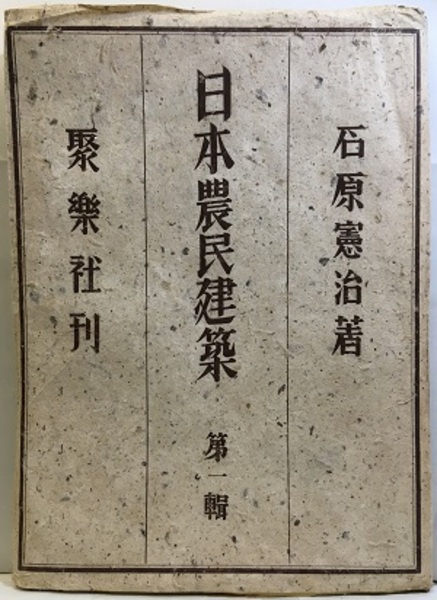 石原憲治著
日本農民建築 第一輯
聚樂社刊